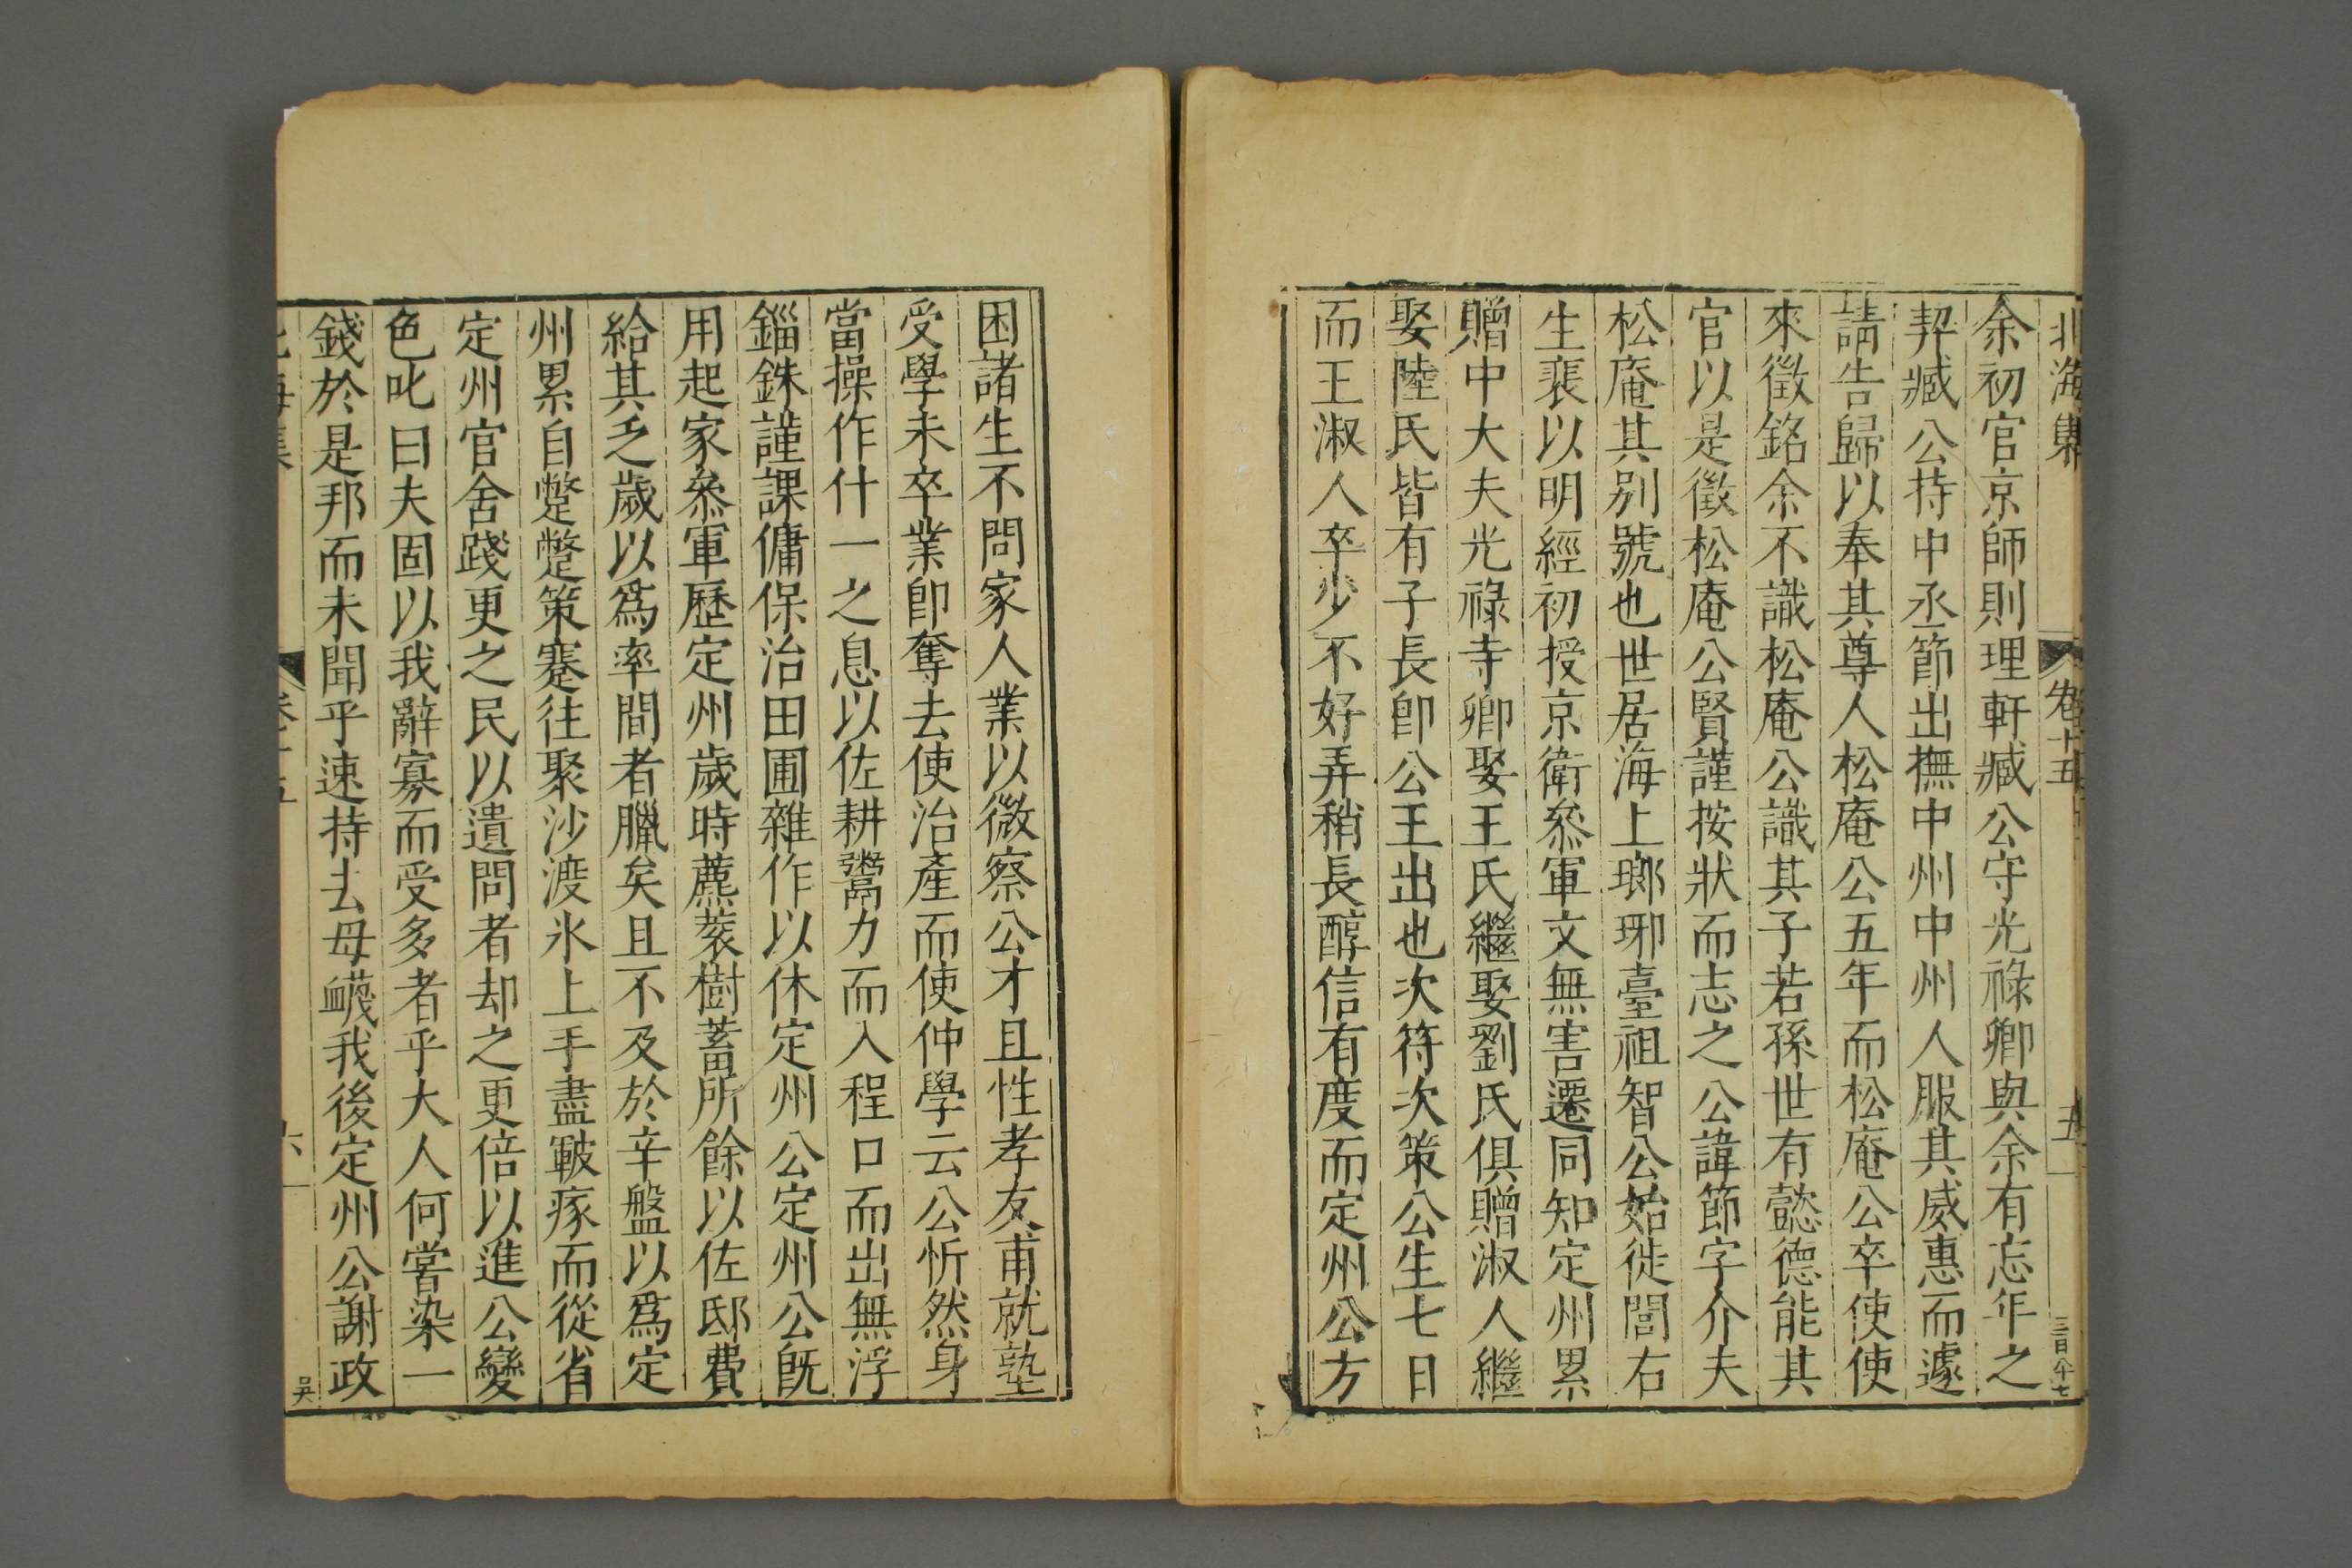 北海集 卷十五 五 三百八十七
余初官京師則理軒臧公守光祿卿與余有忘年之
契臧公持中丞節出撫中州中州人服其威惠而遽
請告歸以奉其尊人松庵公五年而松庵公卒使使
來徵銘余不識松庵公識其子若孫世有懿德能其
官以是徵松庵公賢謹按狀而志之公諱節字介夫
松庵其別號也世居海上瑯琊臺祖智公始徙閭右
生裴以明經初授京衛叅軍文無害遷同知定州累
贈中大夫光祿寺卿娶王氏繼娶劉氏俱贈淑人繼
娶陸氏皆有子長卽公王出也次符次策公生七日
而王淑人卒少不好弄稍長醇信有度而定州公方
困諸生不問家人業以微察公才且性孝友甫就塾
受學未卒業卽奪去使治產而使仲學云公忻然身
當操作什一之息以佐耕鬻力而入程口而出無浮
錙銖謹課傭保治田圃雜作以休定州公定州公旣
用起家叅軍歷定州歲時藨蔉樹蓄所餘以佐邸費
給其乏歲以爲率間者臘矣且不及於辛盤以爲定
州累自蹩蹩策蹇往聚沙渡氷上手盡皸瘃而從省
定州官舍踐更之民以遺問者却之更倍以進公變
色叱曰夫固以我辭寡而受多者乎大人何嘗染一
錢於是邦而未聞乎速持去毋衊我後定州公謝政
北海集 卷十五 六 吳